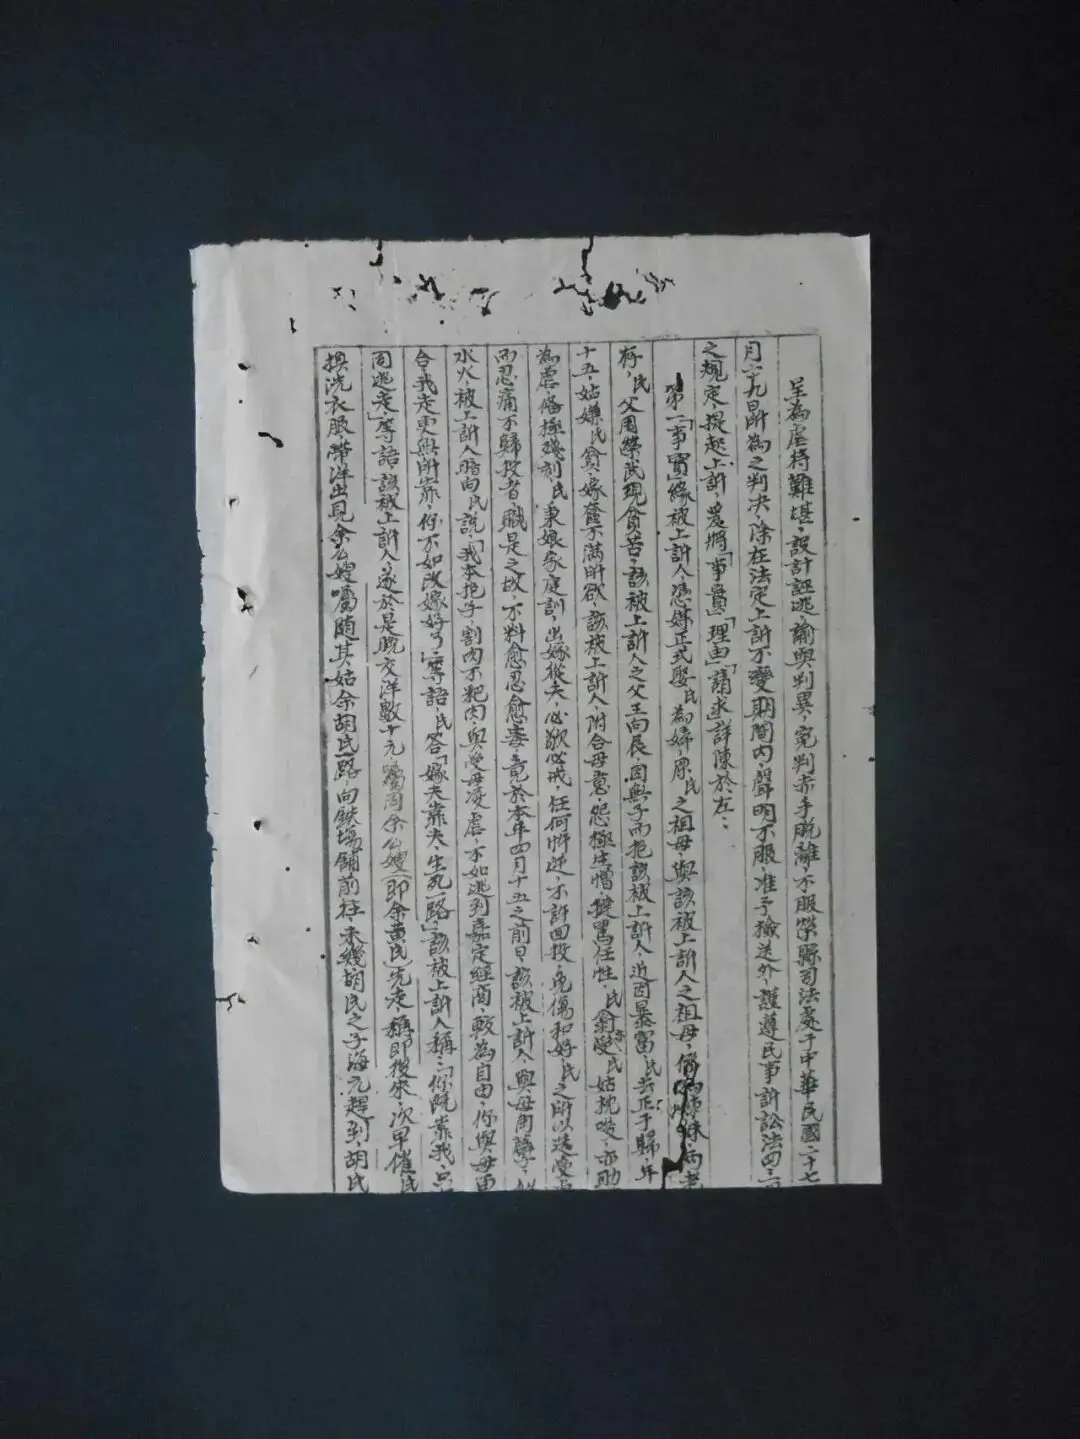 呈為虐待難堪、設計誑逃、諭與判異、冤判赤手脫離、不服榮縣司法處于中華民國二十七
月二十九日所為之判決、除在法定上訴不變期間內、聲明不服、准予檢送外、謹遵民事訴訟法四三
之規定、提起上訴、爰將「事實」「理由」「請求」詳陳於左：
第一「事實」緣被上訴人、憑媒正式娶民為婦、原民之祖母、與該被上訴人之祖母、係
存、民父周榮武現貧苦、該被上訴人之父王向長、因無子而抱該被上訴人、近因暴富、民去正于歸、年
十五、姑嫌民貧、嫁奩不滿所欲、該被上訴人、附合母意、怨極生憎、鞭罵任性、民翁受民姑枕唆、亦助
為虐、俻極殘刻、民秉娘家庭訓、出嫁從夫、必敬必戒、任何忤逆、不許回投、免傷和好、民之所以迭受
而忍痛不歸投者、職是之故、不料愈忍愈毒、竟於本年四月十五之前日、該被上訴人、與母角孽、
水火、被上訴人暗向民說、「我本抱子、割肉不粑肉、與受母凌虐、不如逃到嘉定經商、較為自由、你與母更
合、我走更無所靠、你不如改嫁好了」等語、民答「嫁夫靠夫、生死一路」該被上訴人稱：「你既靠我、
同逃走」等語、該被上訴人、遂於是晚交洋數十元、囑周余么嫂（即余黃氏先走、稱即後來、次早催民
換洗衣服、帶洋出見余么嫂、囑隨其姑余胡氏一路、向鉄場舖前往、未幾胡氏之子海元趕到、胡氏